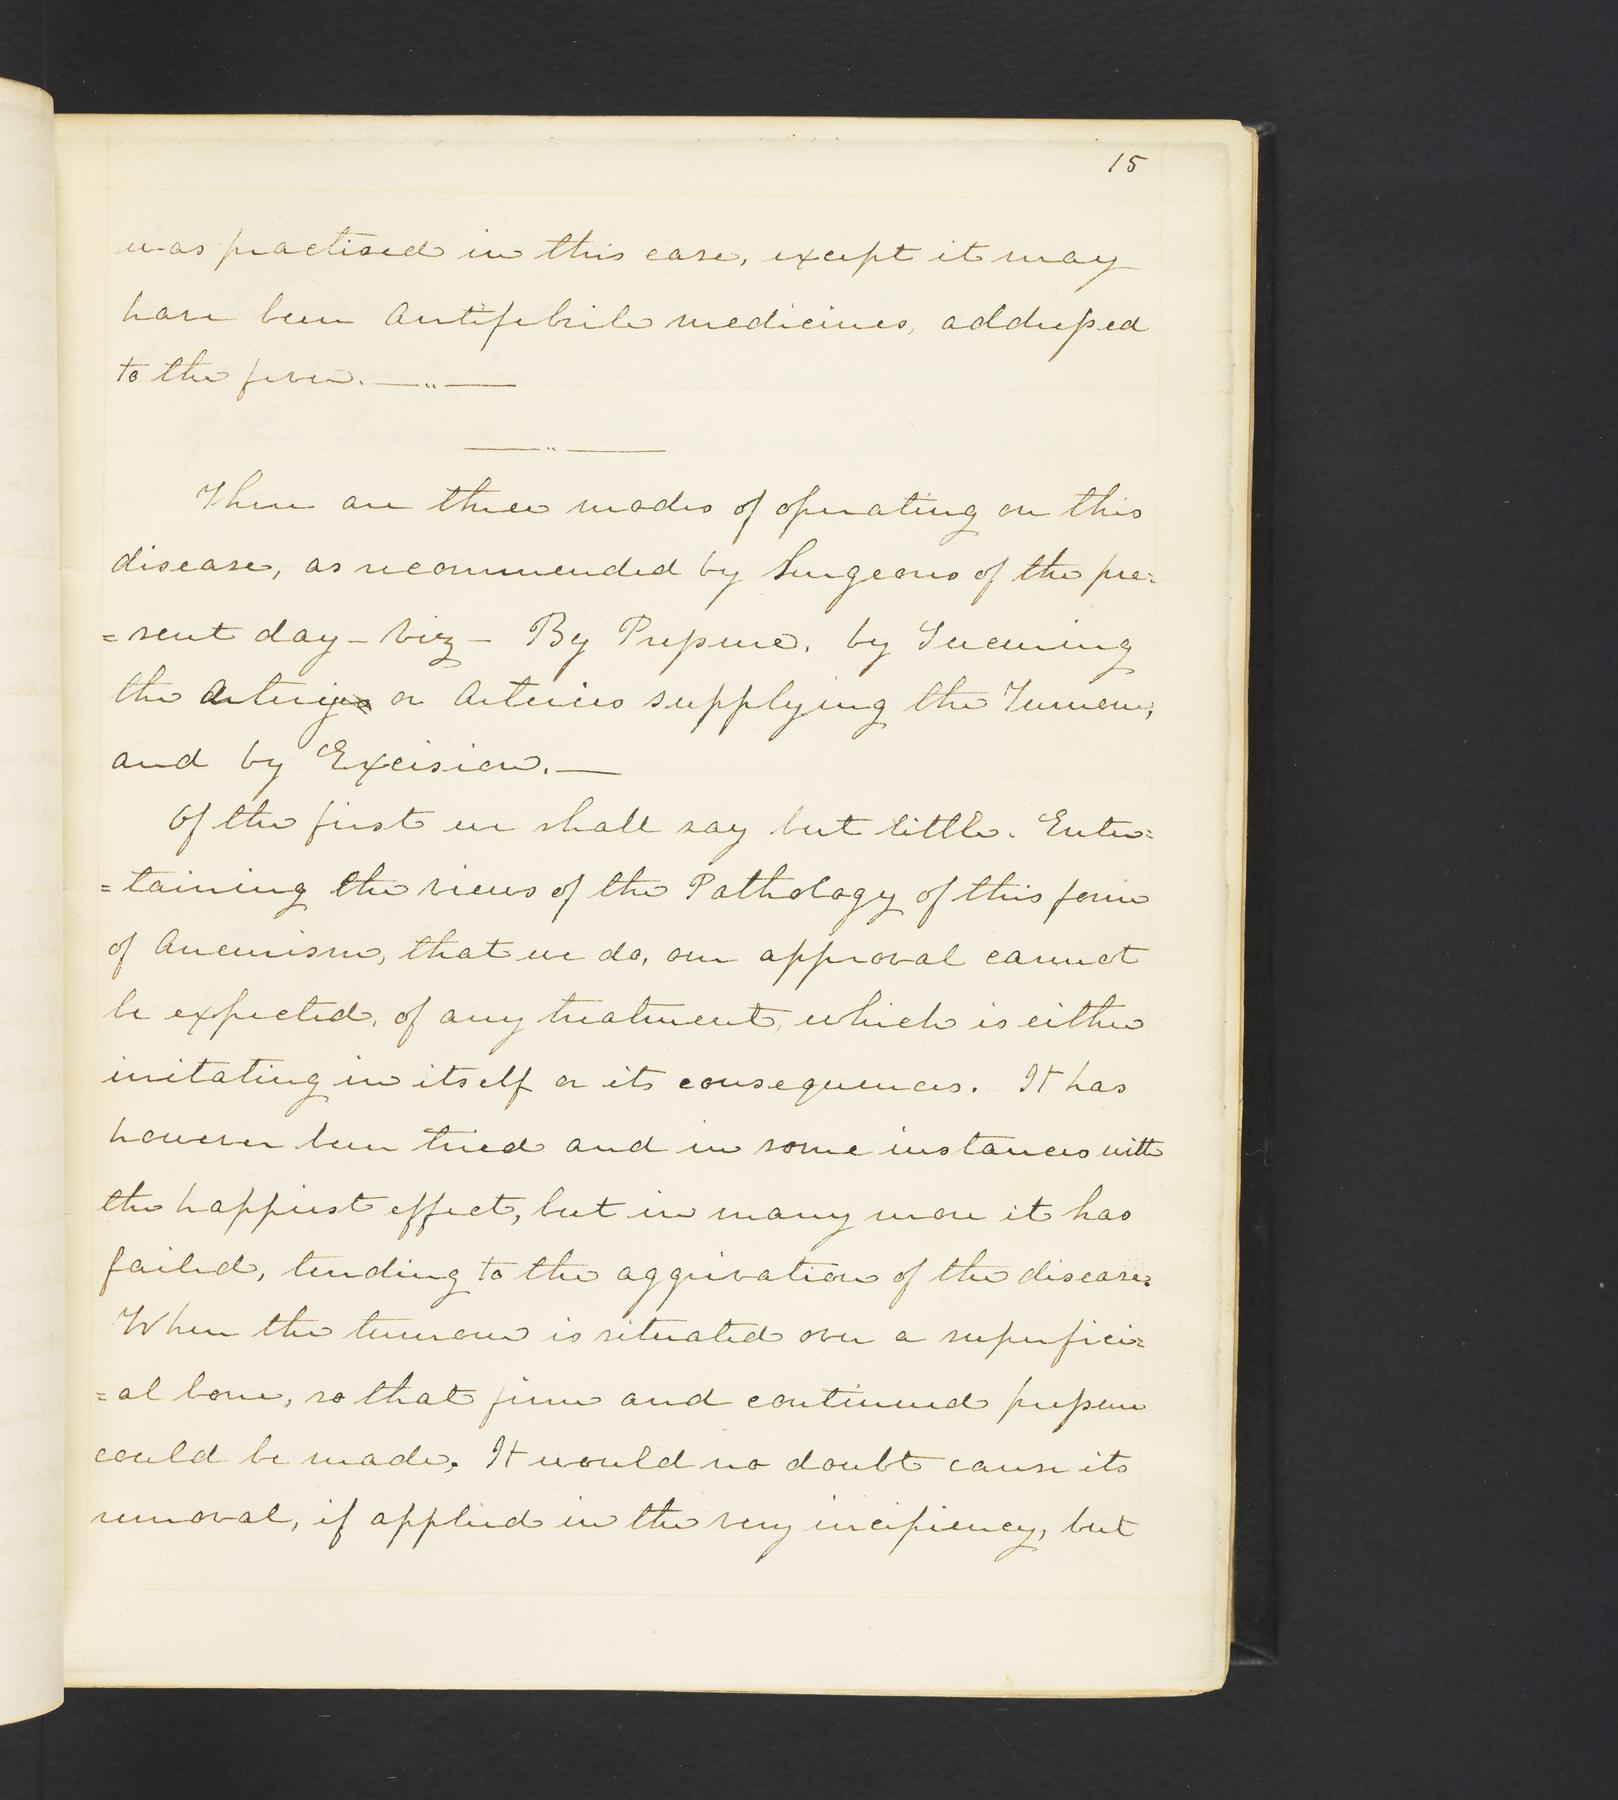 15
was practised in this case, except it may
have been Antifebrile medicines, addressed
to the fever. — " —
— " —
There are three modes of operating on this
disease, as recommended by Surgeons of the pre=
=sent day – viz – By Pressure, by Securing
the Artery or Arteries supplying the Tumour,
and by Excision. —
Of the first we shall say but little. Enter=
=taining the views of the Pathology of this form
of Aneurism, that we do, our approval cannot
be expected, of any treatment, which is either
irritating in itself or its consequences. It has
however been tried and in some instances with
the happiest effect, but in many more it has
failed, tending to the aggrivation of the disease.
When the tumour is situated over a superfici=
=al bone, so that firm and continued pressure
could be made, It would no doubt cause its
removal, if applied in the very incipiency, but